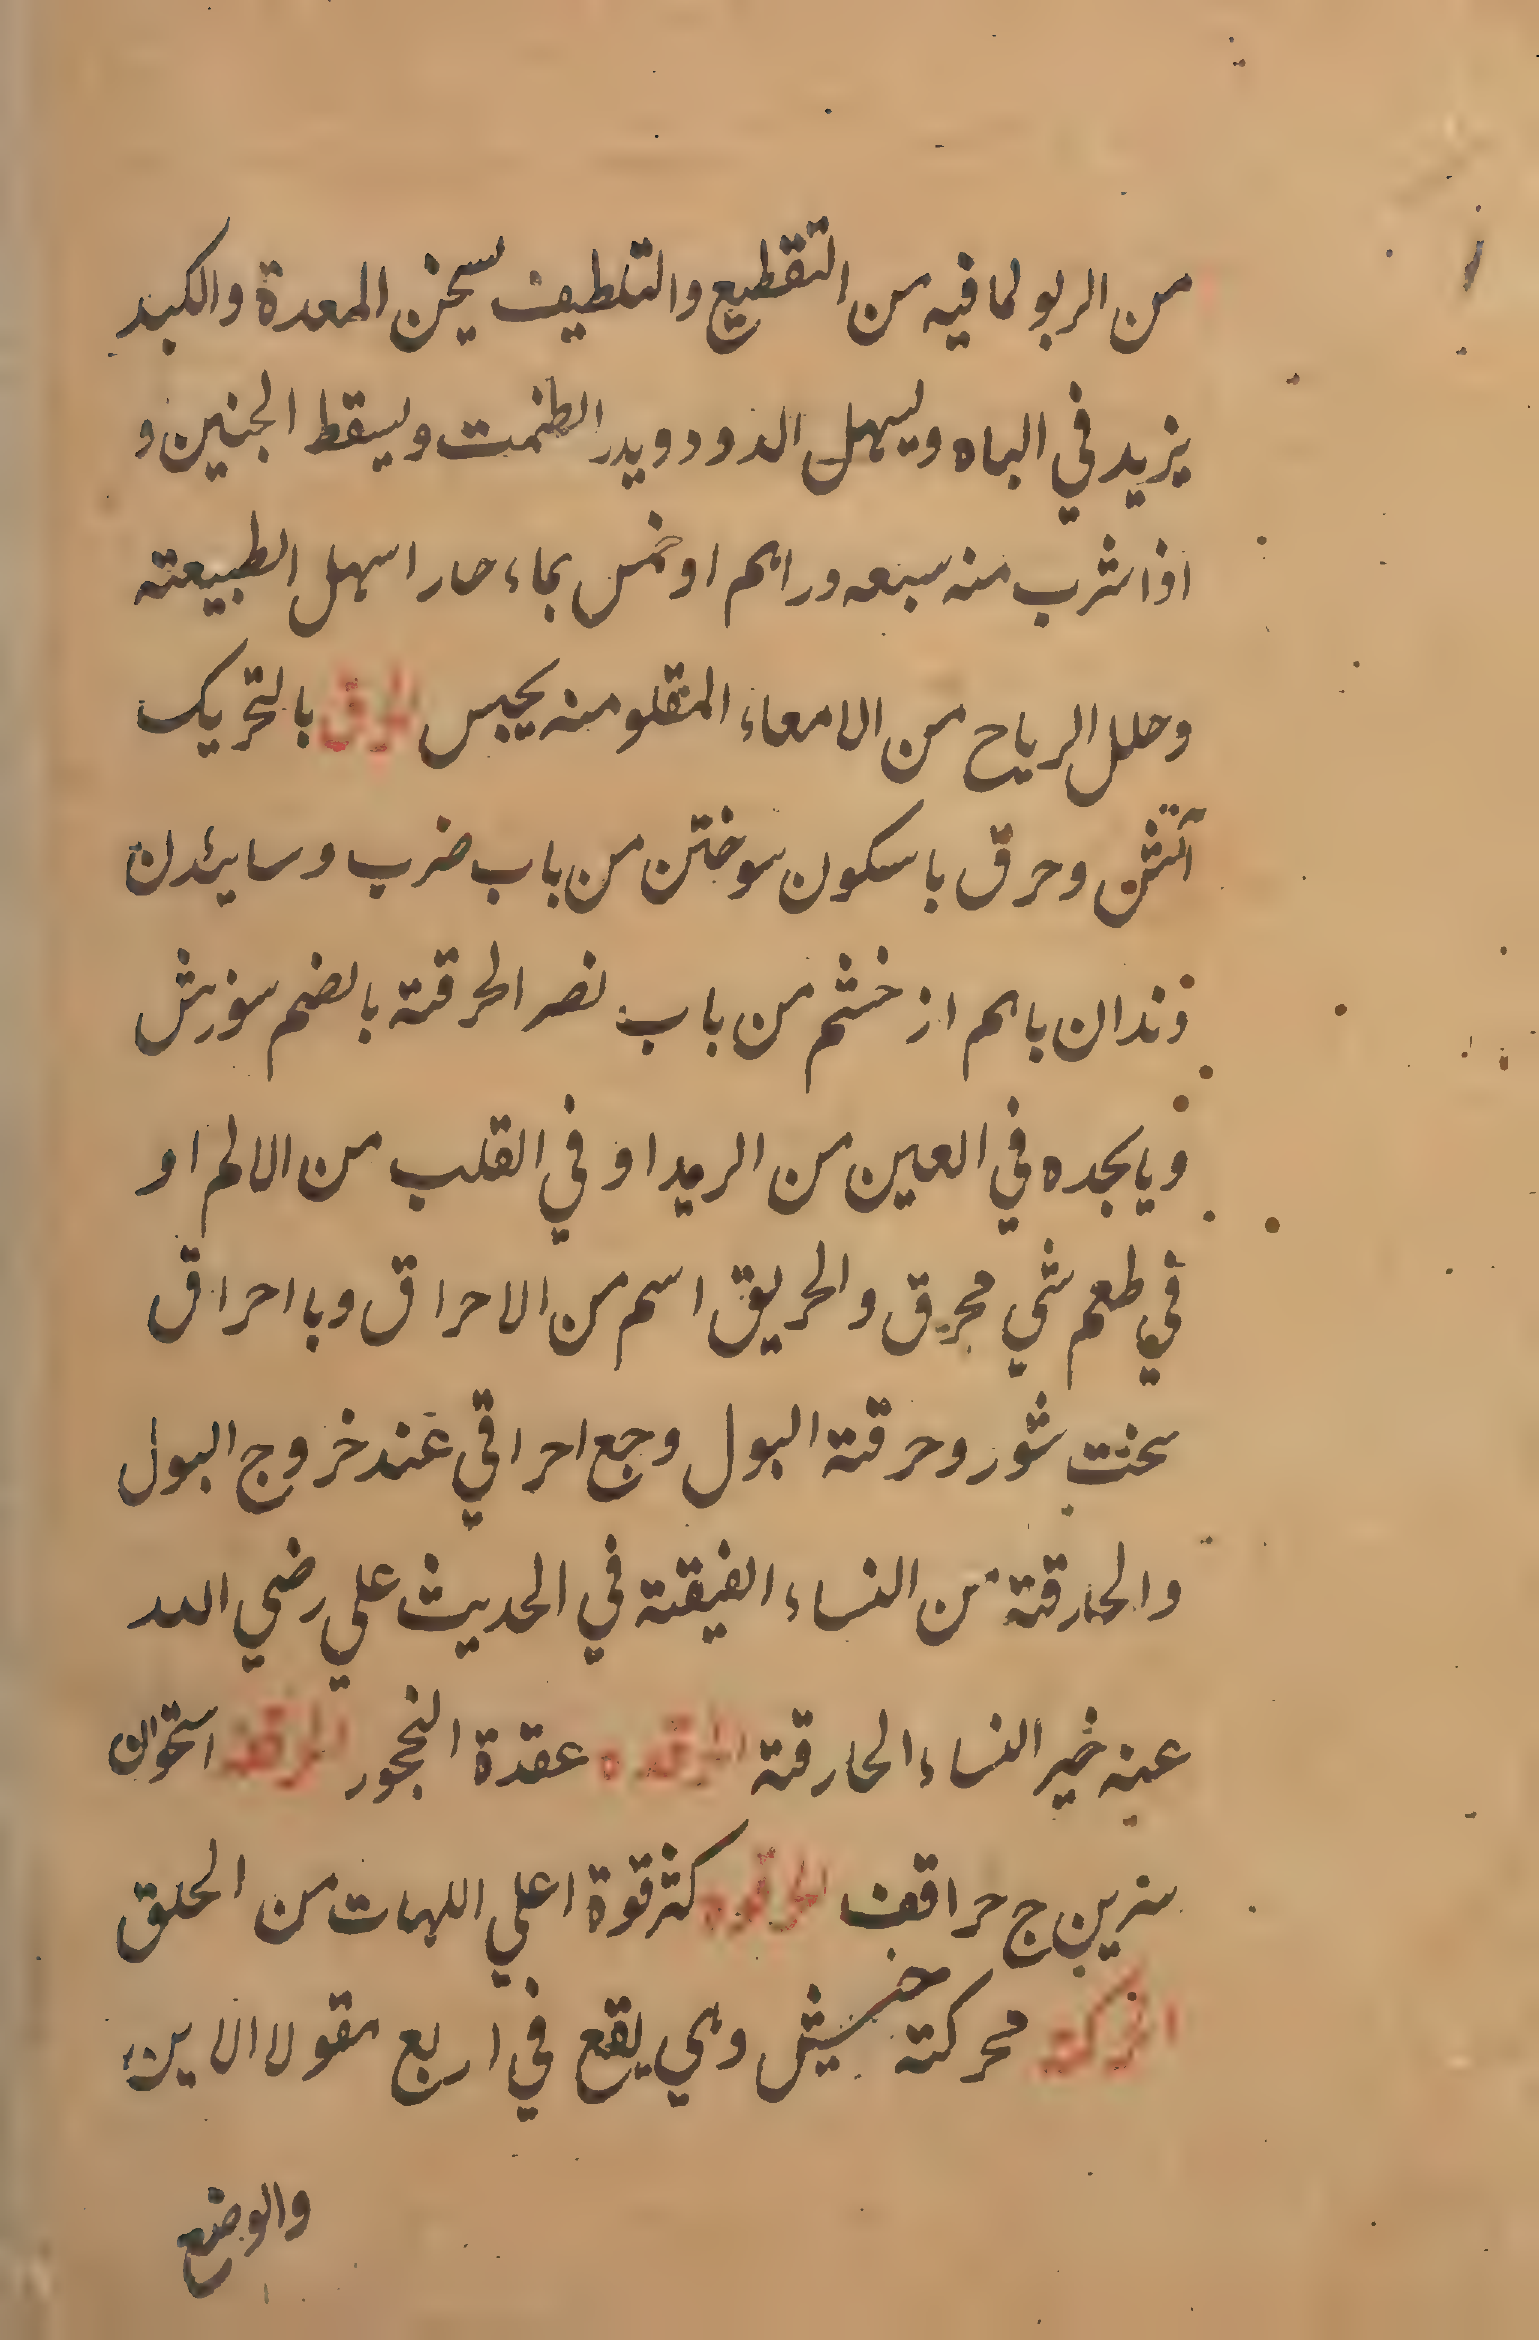 من الربو لما فيه من التقطيع والتلطيف يسخن المعدة والكبد
يزيد في الباه ويسهل الدود ويدر الطمث ويسقط الجنين و
اذا شرب منه سبعه دراهم او خمس بماء حار اسهل الطبيعته
وحلل الرياح من الامعاء المقلو منه يحبس الحرق بالتحريك
آتش وحرق با سكون سوختن من باب ضرب وسائيدن
دندان باهم از خشم من باب نصر الحرقة بالضم سوزش
ويا يجده في العين من الرمد او في القلب من الالم او
في طعم شي محرق والحريق اسم من الاحراق وبا احراق
سخت شور وحرقة البول وجع احراقي عند خروج البول
والحارقة من النساء الضيقة في الحديث علي رضي الله
عنه خير النساء الحارقة الحرقده عقدة الحنجور الحرقفه استخوان
سرين ج حراقف الحرقوه كترقوة اعلي اللهات من الحلق
الحركة محركة جنبش وهي يقع في اربع مقولا الاين
والوضع